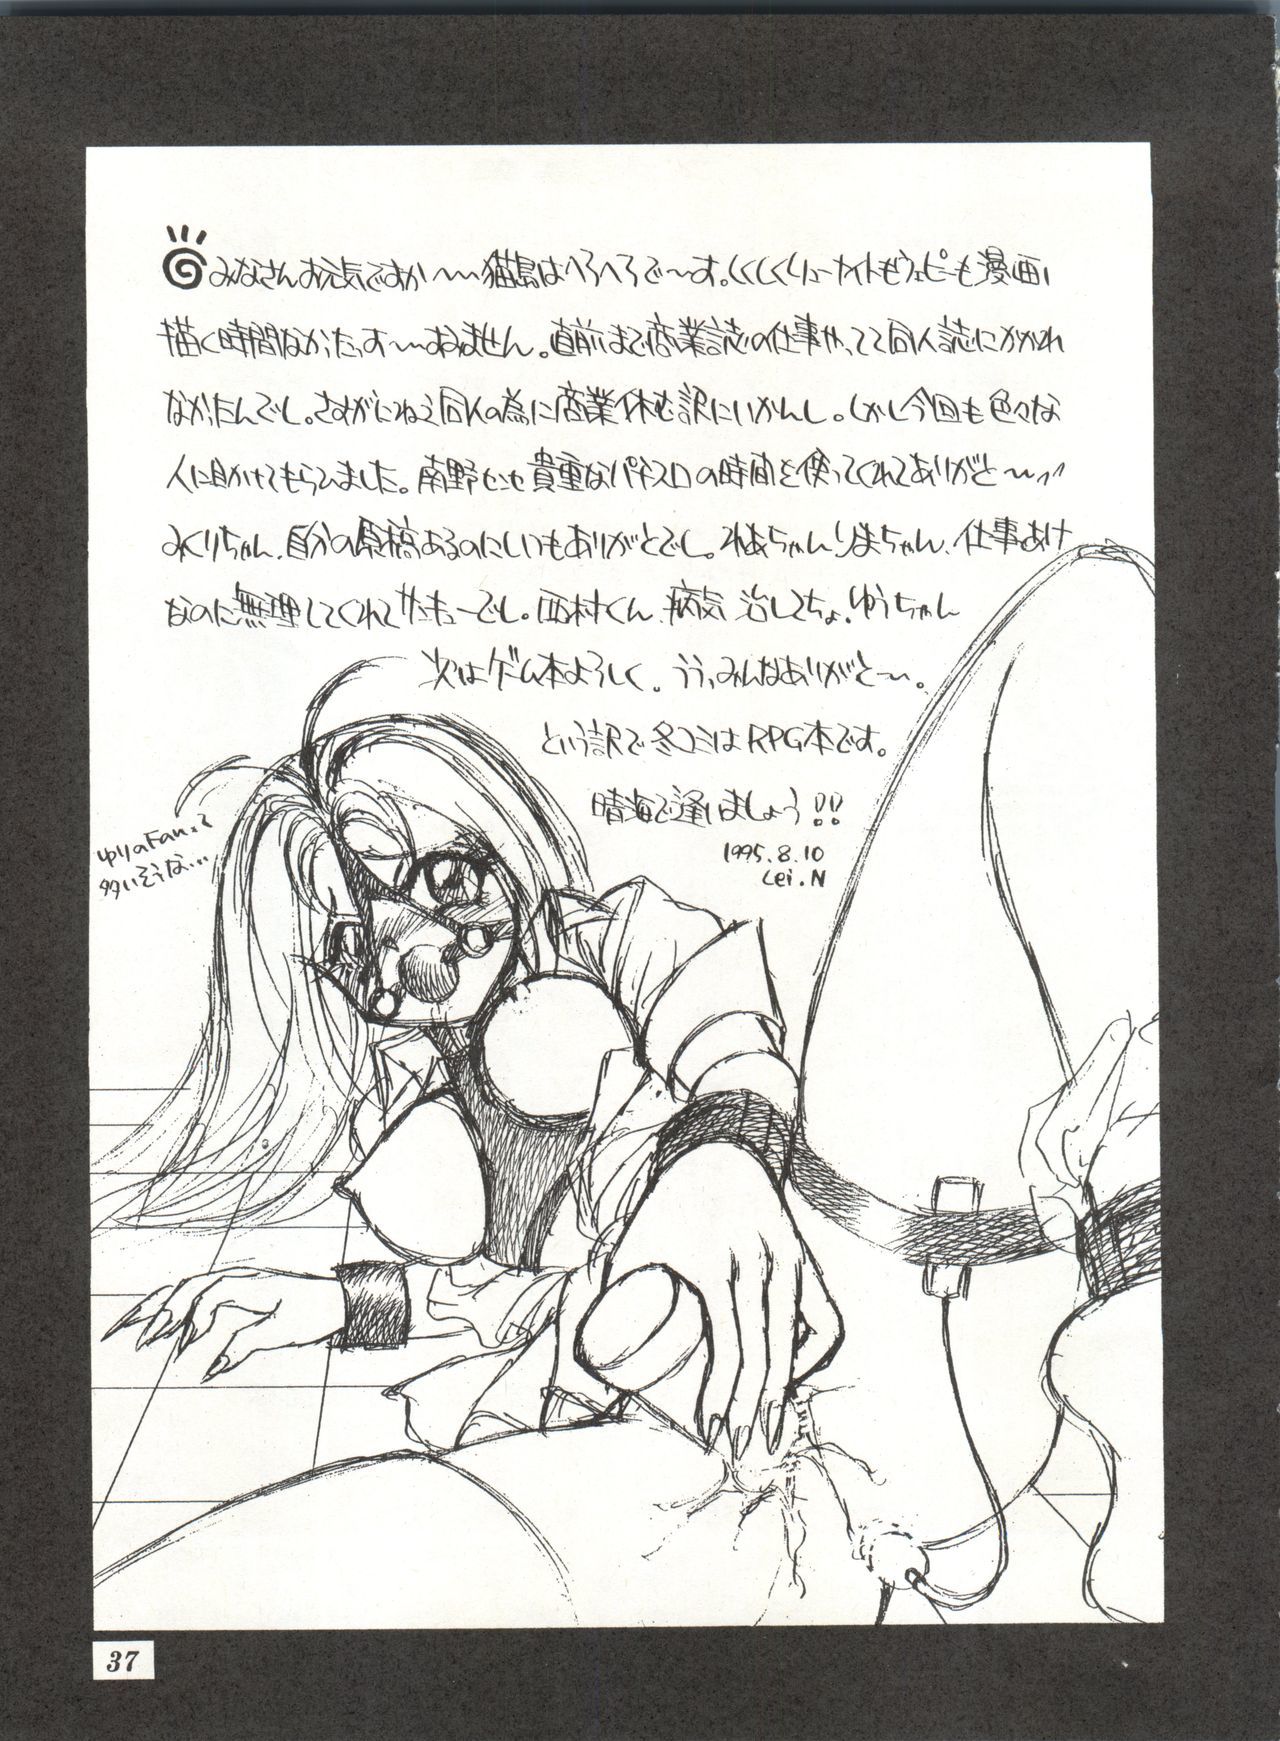 みなさんお元気ですか〜〜猫島はへろへろで〜す。しくしくリューナイトもウェピーも漫画
描く時間なかったっす〜〜すいません。直前まで商業誌の仕事やってて同人誌にかかれ
なかったんでし。さすがにねえ同人の為に商業休む訳にいかんし。しかし今回も色々な
人に助けてもらひました。南野センセ貴重なパチスロの時間を使ってくれてありがと〜
みくりちゃん、自分の原稿あるのにいつもありがとでし。ねあちゃんりまちゃん、仕事あけ
なのに無理してくれてサンキューでし。西村くん、病気治してちょ。ゆうちゃん
次はゲーム本よろしく。うう、みんなありがと〜。
という訳で冬コミはRPG本です。
晴海で逢いましょう!!
1995.8.10
Lei.N
ゆりのFanって
多いそうな…
37